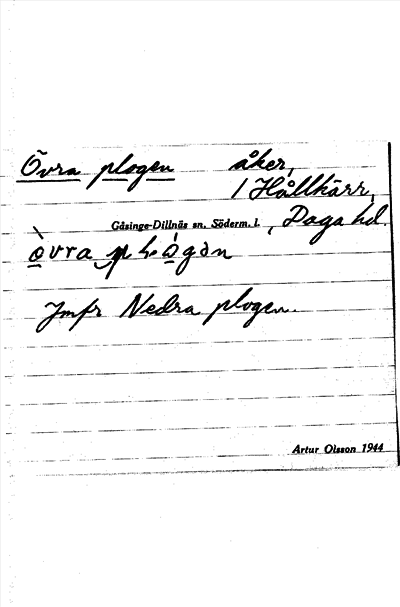 Övra plogen åker,
/ Hållkärr,
Gåsinge-Dillnäs sn. Söderm. l. , Daga hd.
Jmfr Nedra plogen.
Artur Olsson 1944